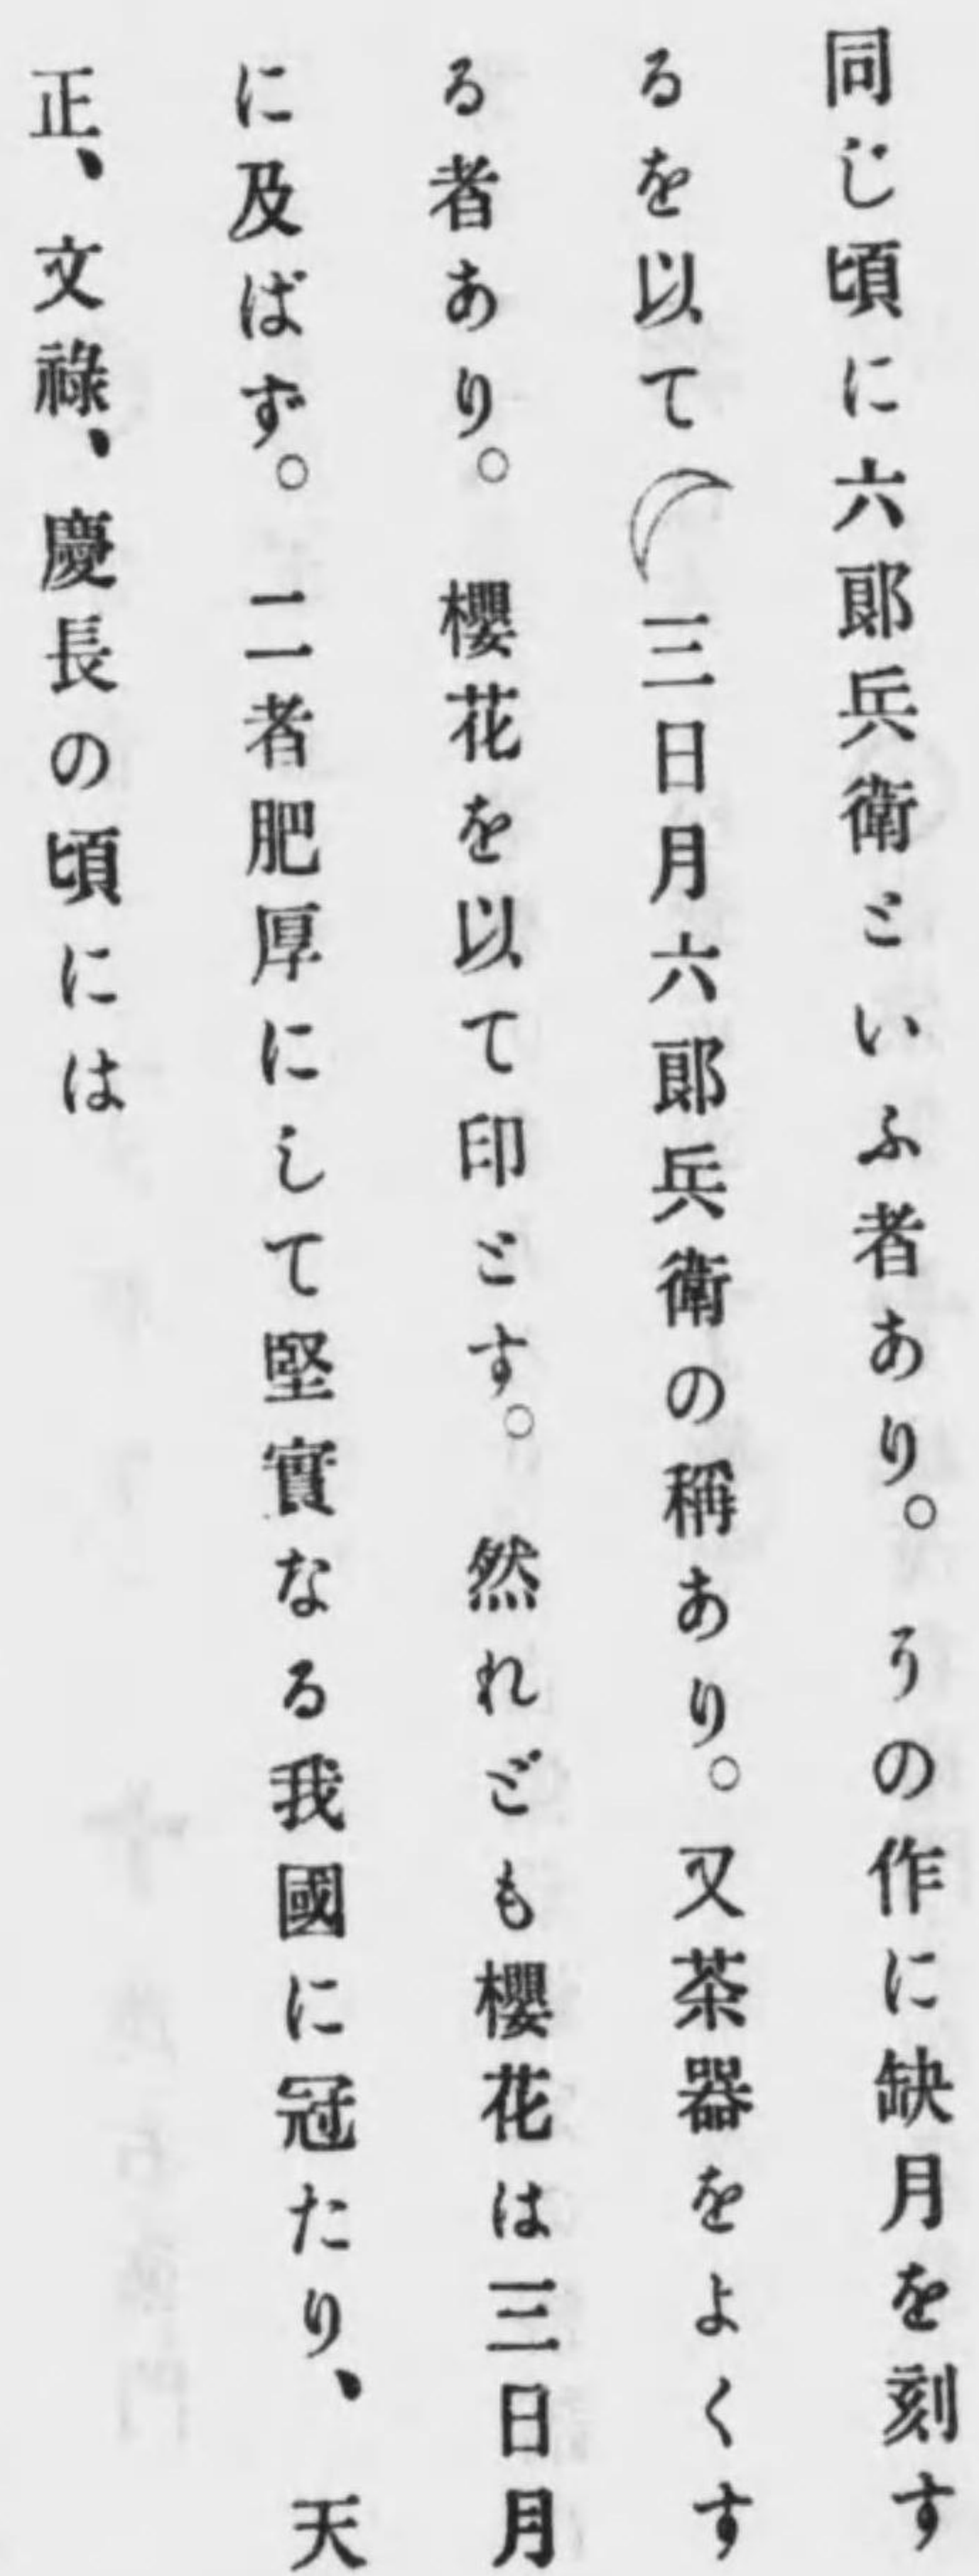 同じ頃に六郞兵衞といふ者あり。うの作に缺月を刻す
るを以て三日月六郞兵衞の稱あり。又茶器をよくす
る者あり。櫻花を以て印とす。然れども櫻花は三日月
に及ばず。二者肥厚にして堅實なる我國に冠たり、天
正、文祿、慶長の頃には